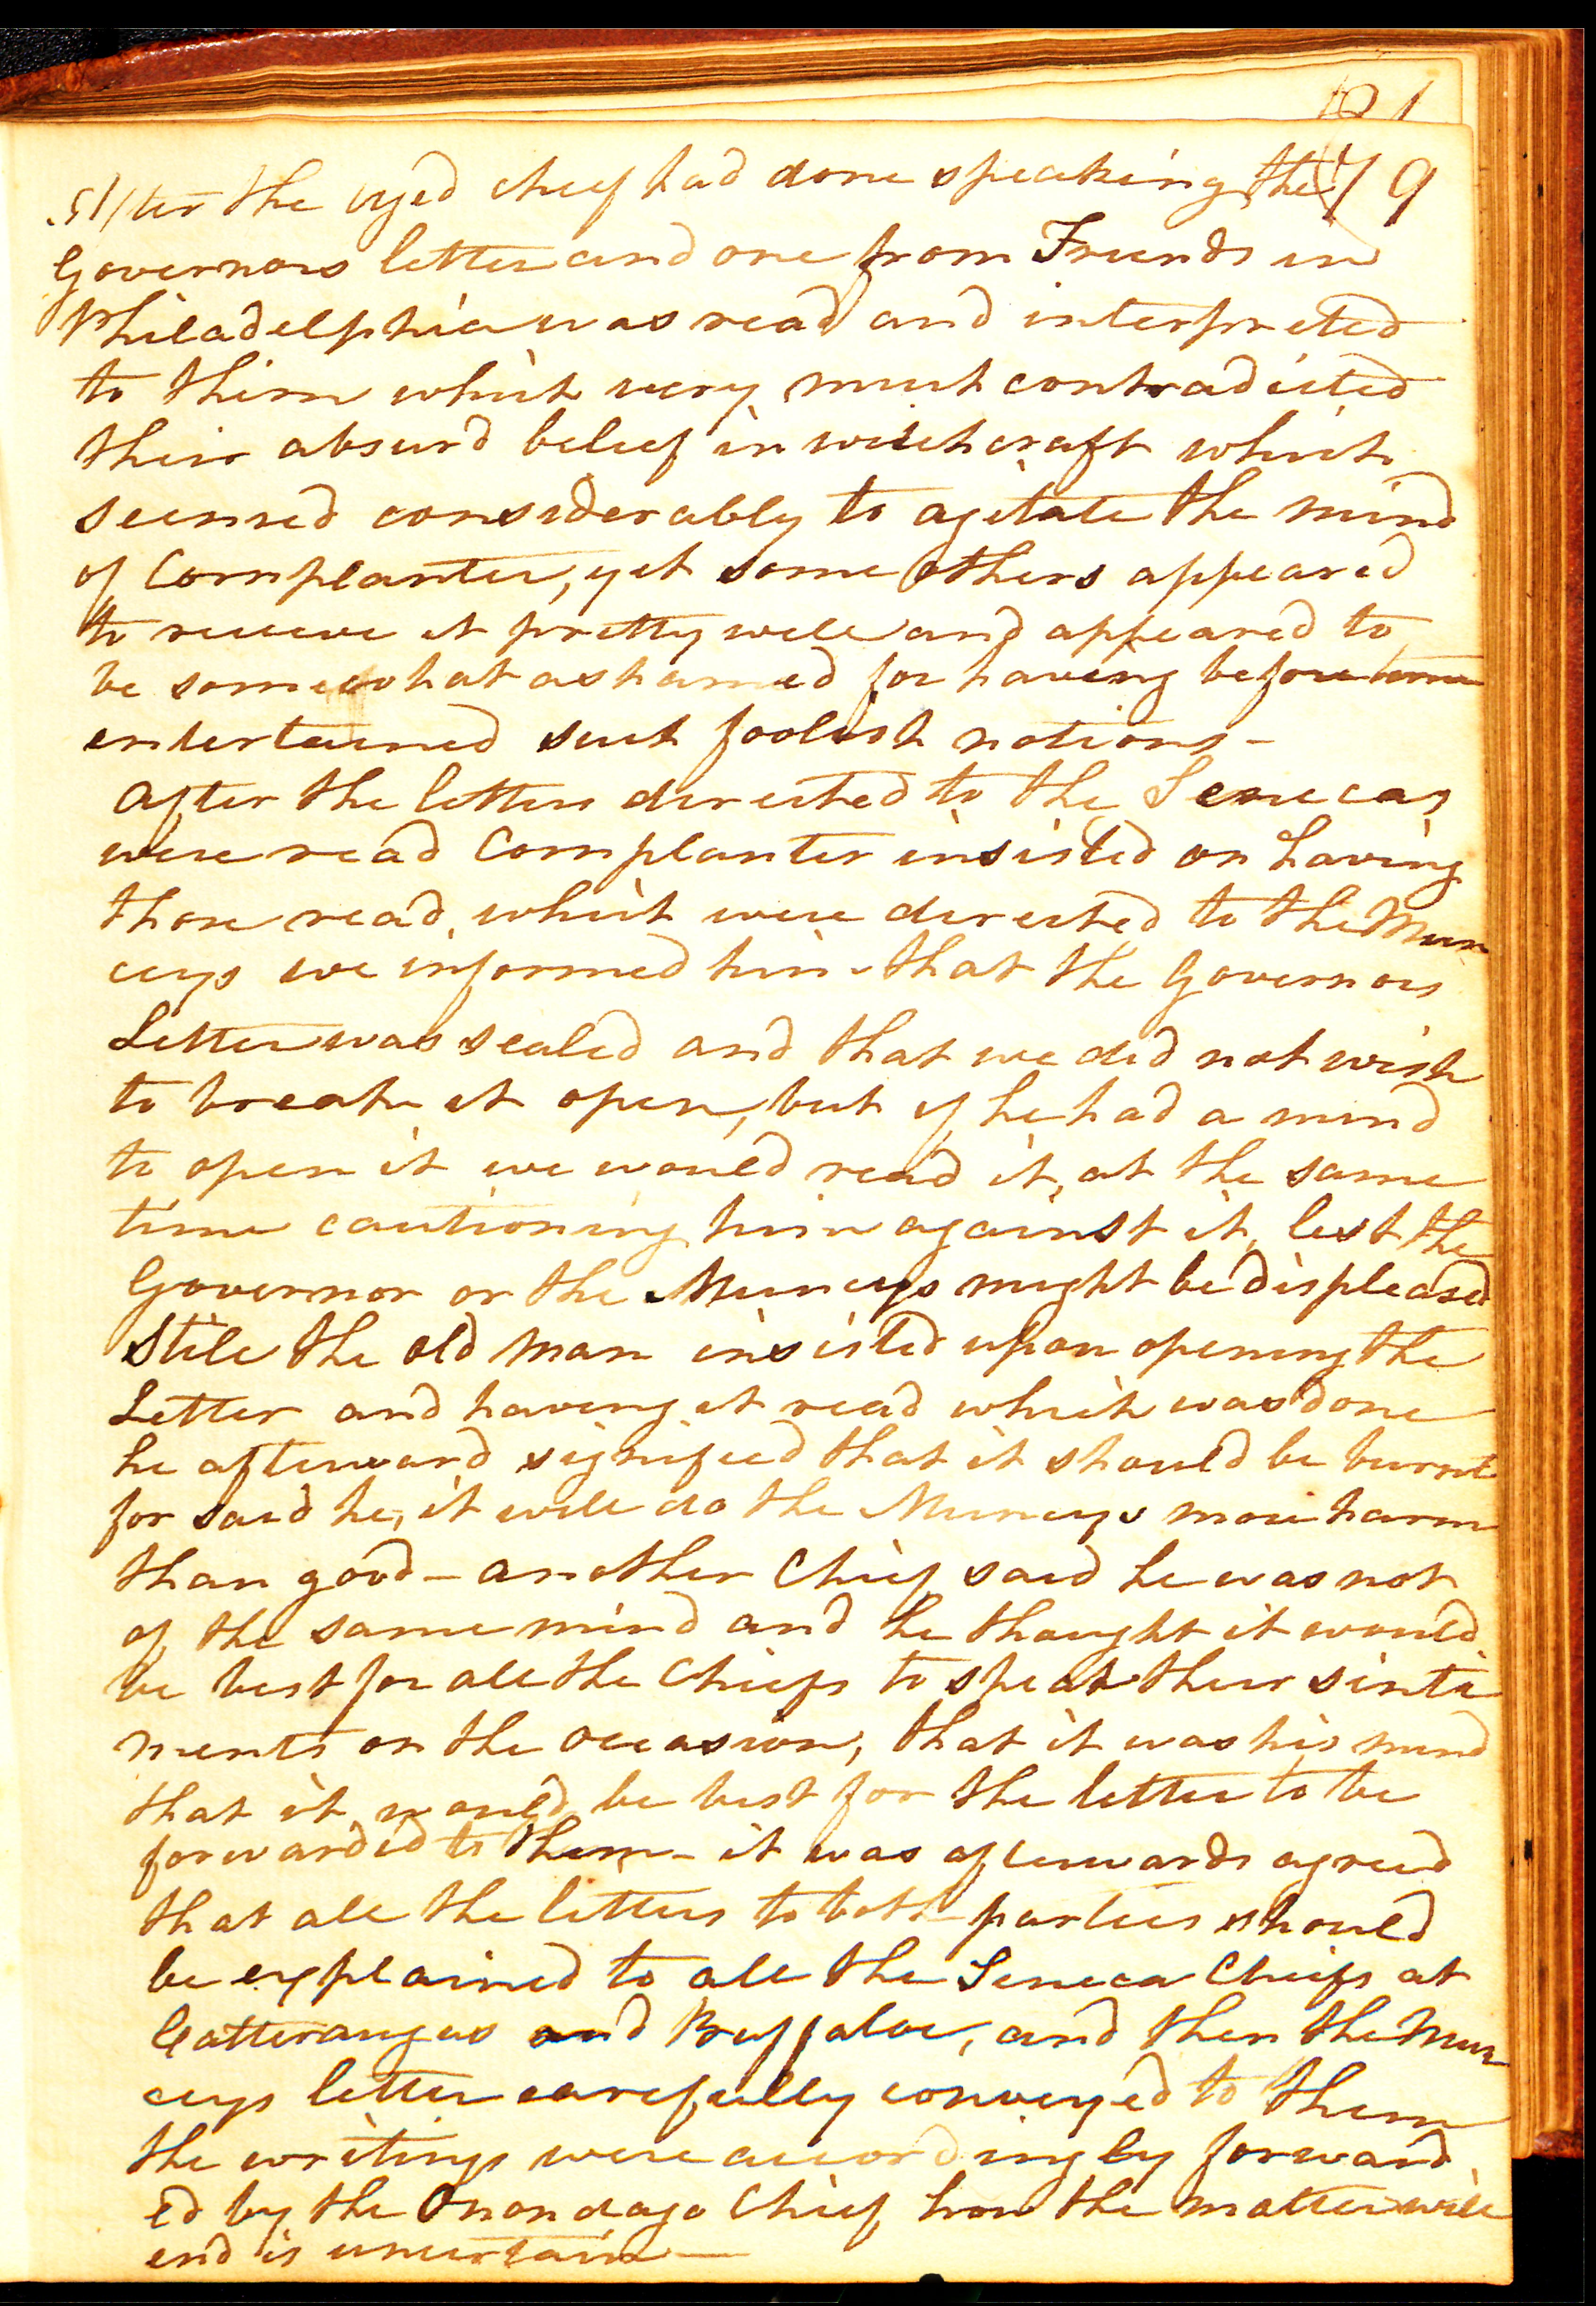 121
79
After the aged chief had done speaking the
Governors letter and one from Friends in
Philadelphia was read and interpreted
to them which very much contradicted
their absurd belief in witchcraft which
seemed considerably to agitate the mind
of Cornplanter, yet some others appeared
to receive it pretty well and appeared to
be somewhat ashamed for having before
entertained such foolish notions -
after the letters directed to the Senecas
were read Cornplanter insisted on having
those read, which were directed to the Mun
ceys we informed him that the Governors
Letter was sealed and that we did not wish
to break it open, but if he had a mind
to open it we would read it, at the same
time cautioning him against it, lest the
Governor or the Munceys might be displeased
Still the old man insisted upon opening the
Letter and having it read which was done
he afterward signified that it should be burnt
for said he, it will do the Munceys more harm
than good - another Chief said he was not
of the same mind and he thought it would
be best for all the Chiefs to speak their senti
ments on the occasion, that it was his mind
that it would be best for the letter to be
forwarded to them - it was afterwards agreed
that all the letters to both parties should
be explained to all the Seneca Chiefs at
Catteraugus and Buffaloe, and then the Mun
ceys letter carefully conveyed to them
the writings were accordingly forward
ed by the Onondago Chief, how the matter will
end is uncertain —